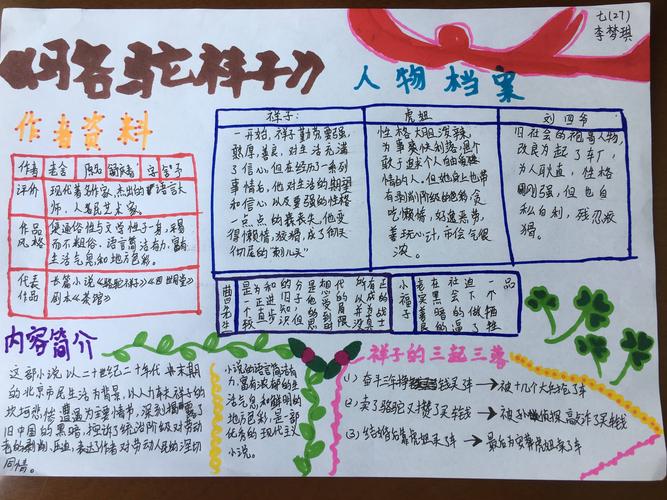 七(27)
李梦琪
《骆驼祥子》
人物档案
作者资料
作者 老舍 原名 舒庆春 字 舍予
评价 现代著名作家、杰出的语言大
师、人民艺术家。
作品风格 集通俗性与文学性于一身，易
而不粗俗，语言简洁有力，富有
生活气息和地方色彩。
代表作品 长篇小说《骆驼祥子》《四世同堂》
剧本《茶馆》
祥子：
一开始，祥子勤劳要强，
憨厚善良，对生活充满
了信心，但在经历了一系列
事情后，他对生活的期望
和信心以及要强的性格
一点点的丧失，他变
得懒惰，狡猾，成了彻头
彻尾的"刺儿头"
虎妞
性格大胆泼辣，
为事爽快利落，是个
敢于追求个人
情的人。但她身上也带
有剥削阶级的色彩，贪
吃懒惰，好逸恶劳，
善玩心计，市侩气很
浓。
刘四爷
旧社会的袍哥人物，
改良办起了车厂，
为人耿直，性格
刚强，但也自
私自利，残忍狡
猾。
曹先生
小福子
内容简介
这部小说以二十世纪二十年代末期
的北京市民生活为背景，以人力车夫祥子的
坎坷悲惨遭遇为主要情节，深刻揭露了
旧中国的黑暗，控诉了统治阶级对劳动
者的剥削、压迫，表达作者对劳动人民的深切
同情。
小说的语言简洁有
力，富有浓郁的生
活气息和鲜明的
地方色彩，是一部
优秀的现代主义
小说。
祥子的三起三落
(1) 奋斗三年挣钱买车 → 被十几个大兵抢了车
(2) 卖了骆驼又攒了买车钱 → 被孙侦探敲诈了买车钱
(3) 结婚后靠虎妞买了车 → 最后为安葬虎妞卖了车